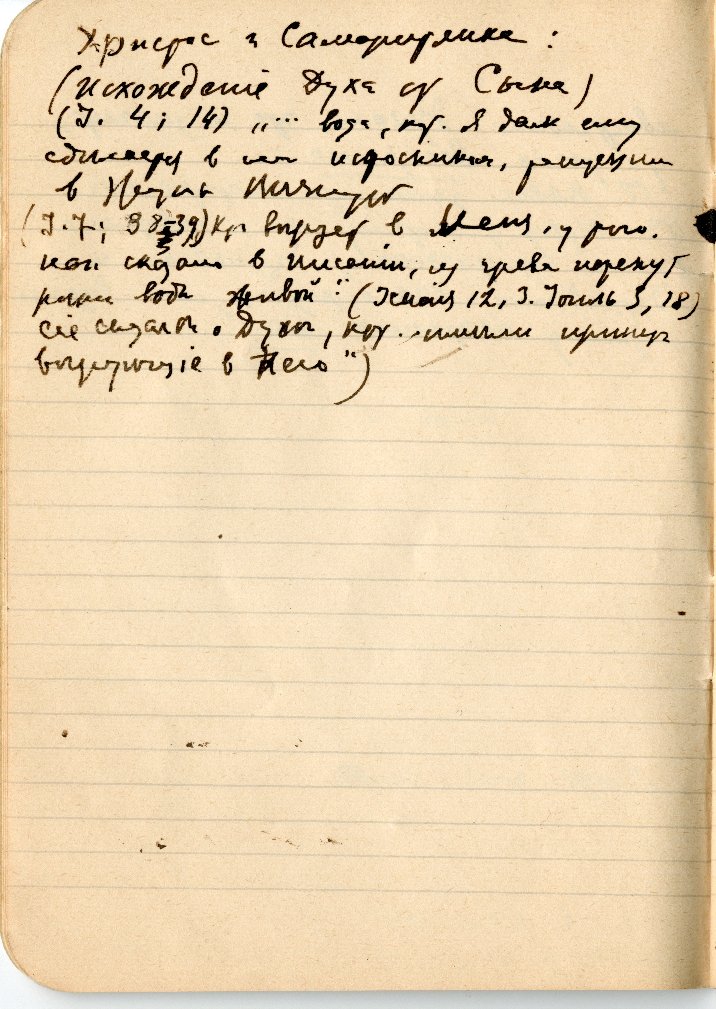 Христос и Самарянка:
(Исхождение Духа от Сына)
(I. 4; 14) „... вода, кот. Я дам ему
сделается в нем источником, текущим
в Жизнь Вечную
(I. 7; 38-39) Кто верует в Меня, у того.
как сказано в писании, из чрева потекут
реки воды живой" (Исаия 12, 3. Иоиль 3, 18)
сие сказал о Духе, кот. имели принять
верующие в Него")